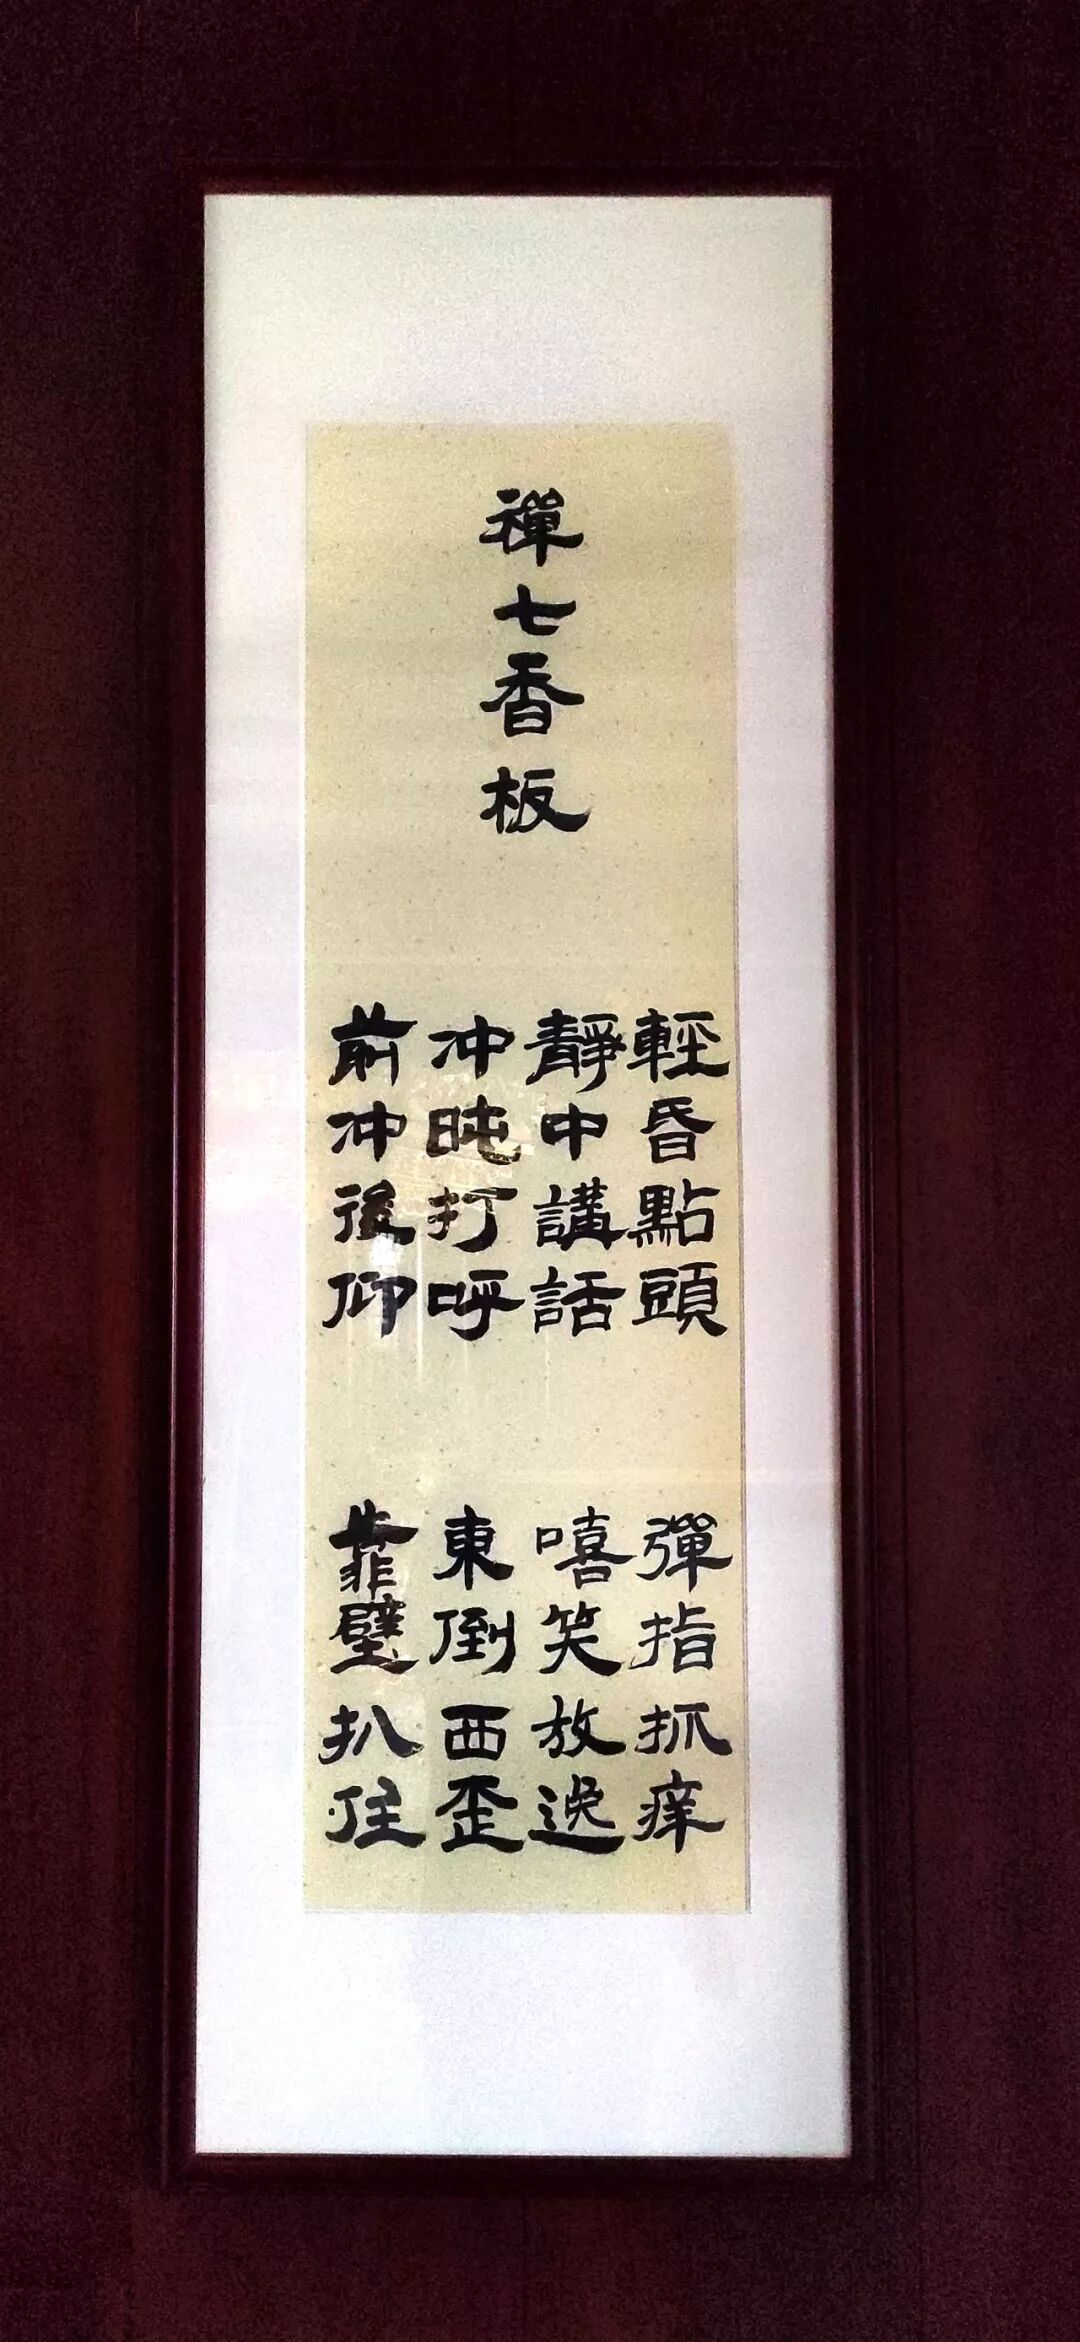 禪七香板
輕昏點頭
靜中講話
冲盹打呼
前冲後仰
彈指抓痒
嘻笑放逸
東倒西歪
靠壁扒住